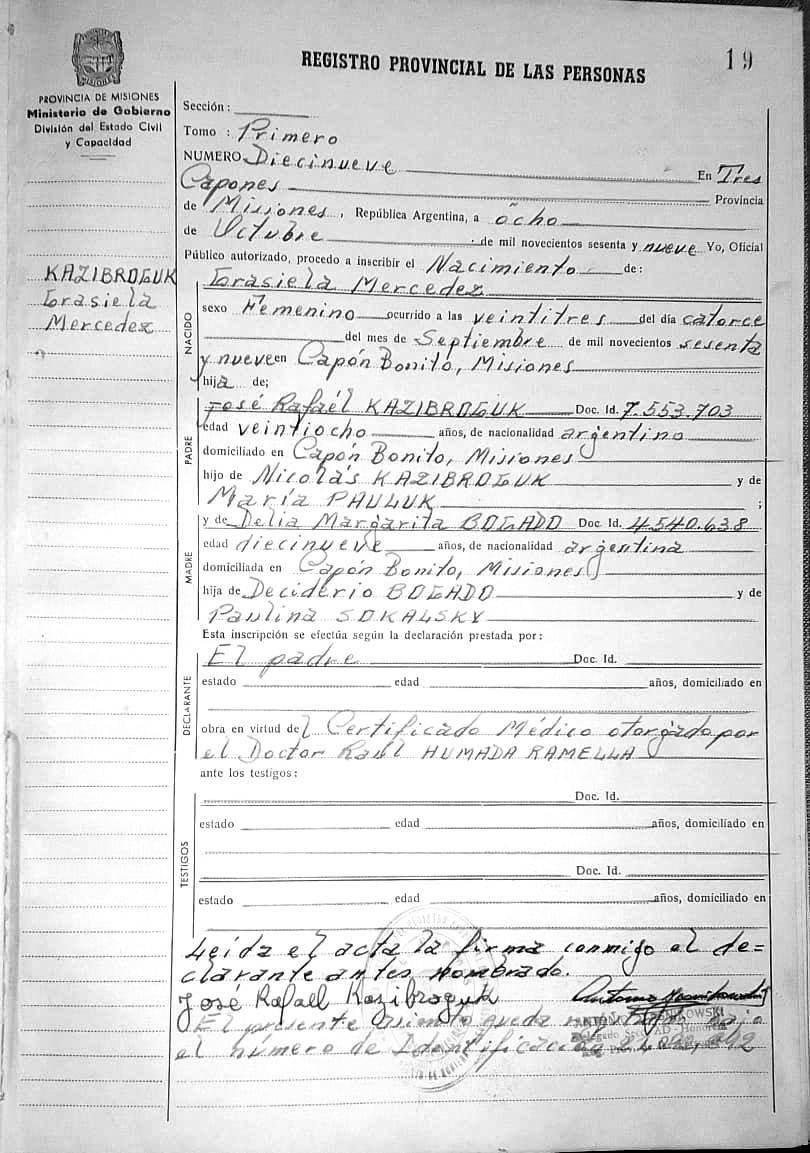 19
REGISTRO PROVINCIAL DE LAS PERSONAS
PROVINCIA DE MISIONES
Ministerio de Gobierno
División del Estado Civil
y Capacidad
KAZIBROGUK
Grasiela
Mercedez
Sección :
Tomo : Primero
NUMERO Diecinueve En Tres
Capones Provincia
de Misiones , República Argentina, a ocho
de Octubre de mil novecientos sesenta y nueve Yo, Oficial
Público autorizado, procedo a inscribir el Nacimiento de :
NACIDO
Grasiela Mercedez
sexo Femenino ocurrido a las veintitres del día catorce
del mes de Séptiembre de mil novecientos sesenta
y nueve en Capón Bonito, Misiones
hija de;
PADRE
José Rafaél KAZIBROGUK Doc. Id. 7.553.703
edad veintiocho años, de nacionalidad argentino
domiciliado en Capón Bonito, Misiones
hijo de Nicolás KAZIBROGUK y de
María PAULUK ;
MADRE
y de Delia Margarita BOGADO Doc. Id. 4.540.638
edad diecinueve años, de nacionalidad argentina
domiciliada en Capón Bonito, Misiones
hija de Deciderio BOGADO y de
Paulina SOKALSKY
Esta inscripción se efectúa según la declaración prestada por :
DECLARANTE
El padre Doc. Id.
estado edad años, domiciliado en
obra en virtud del Certificado Médico otorgado por
el Doctor Raúl HUMADA RAMELLA
ante los testigos :
TESTIGOS
Doc. Id.
estado edad años, domiciliado en
Doc. Id.
estado edad años, domiciliado en
Leída el acta la firma conmigo el de=
clarante antes nombrado.
José Rafael Kazibroguk
El presente queda bajo
el número de Identificación